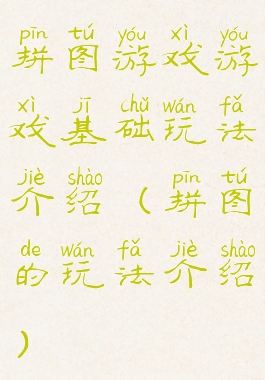 pīn tú yóu xì yóu
拼图游戏游
xì jī chǔ wán fǎ
戏基础玩法
jiè shào pīn tú
介绍（拼图
de wán fǎ jiè shào
的玩法介绍
）